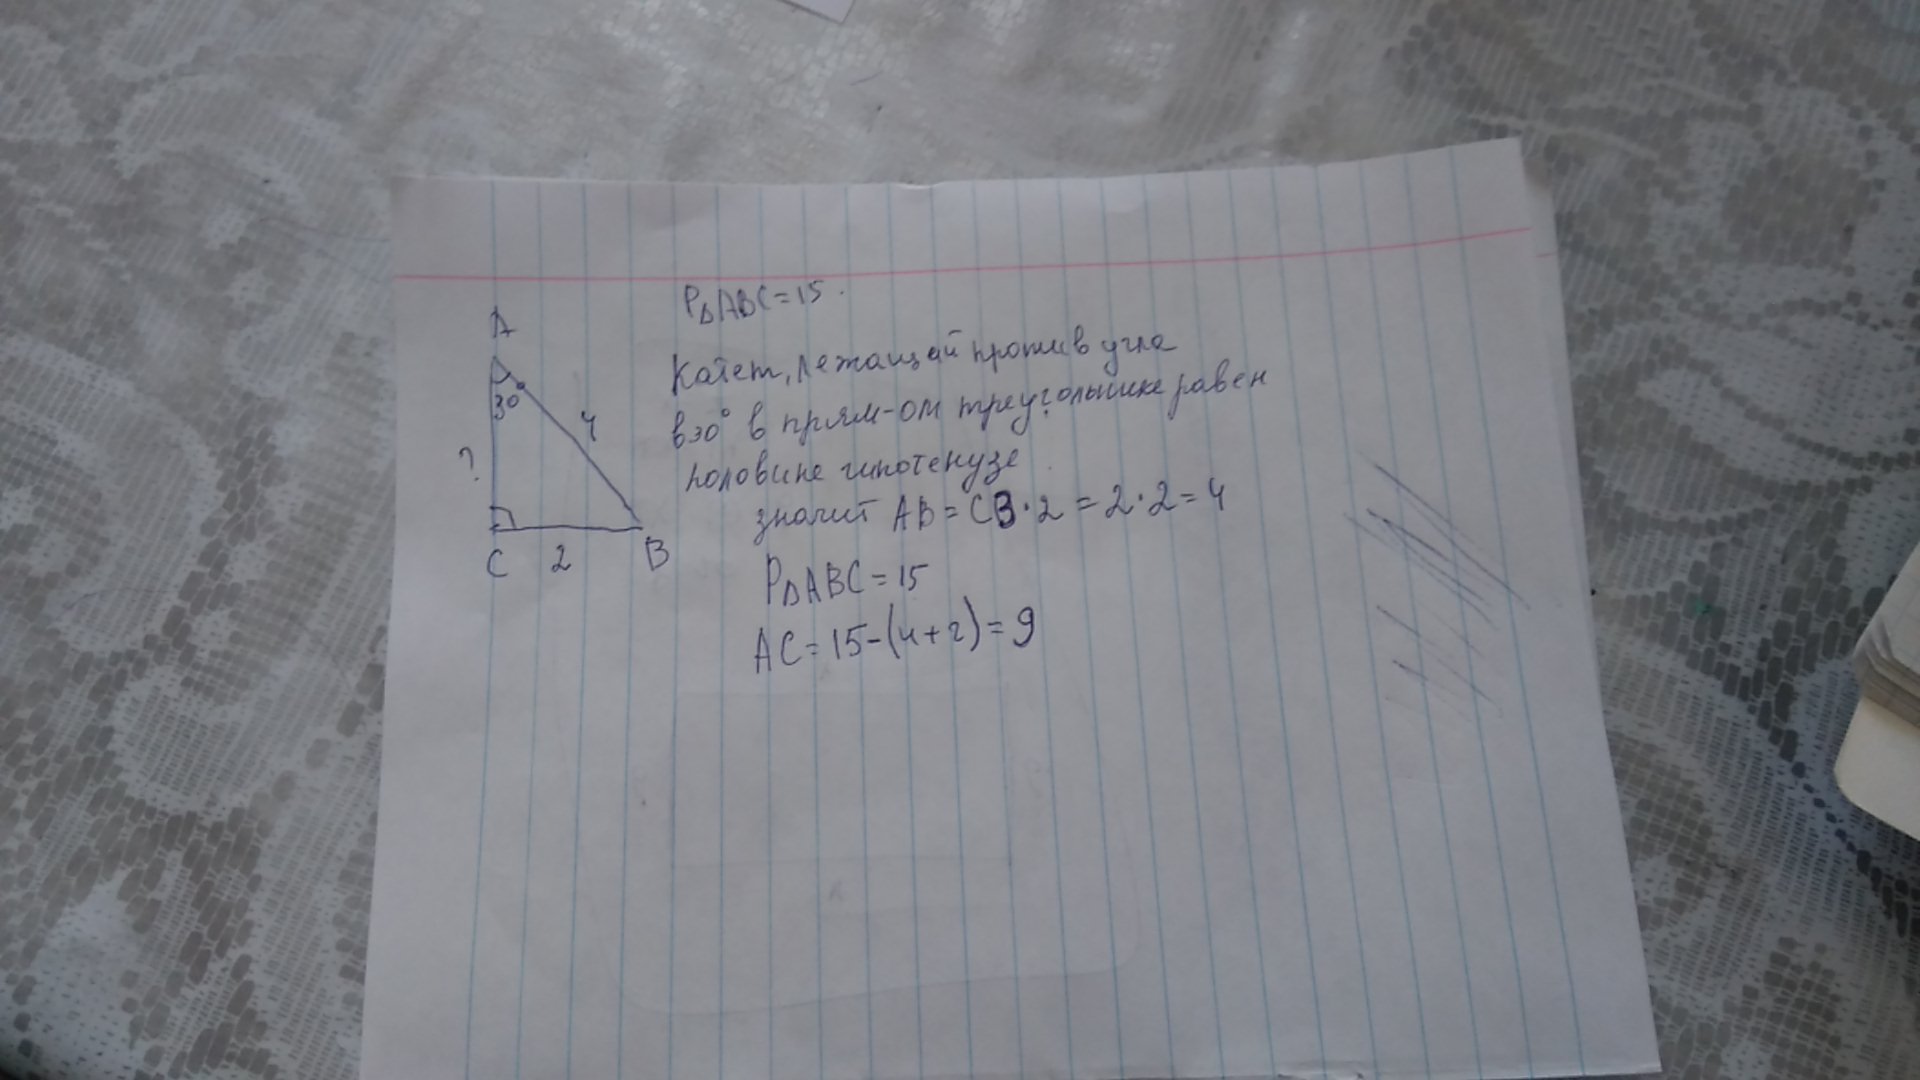 P△ABC=15.
A
30°
4
?
C 2 B
Катет, лежащий против угла
в30° в прям-ом треугольнике равен
половине гипотенузе
значит AB = CB·2 = 2·2=4
P△ABC=15
AC=15-(4+2)=9